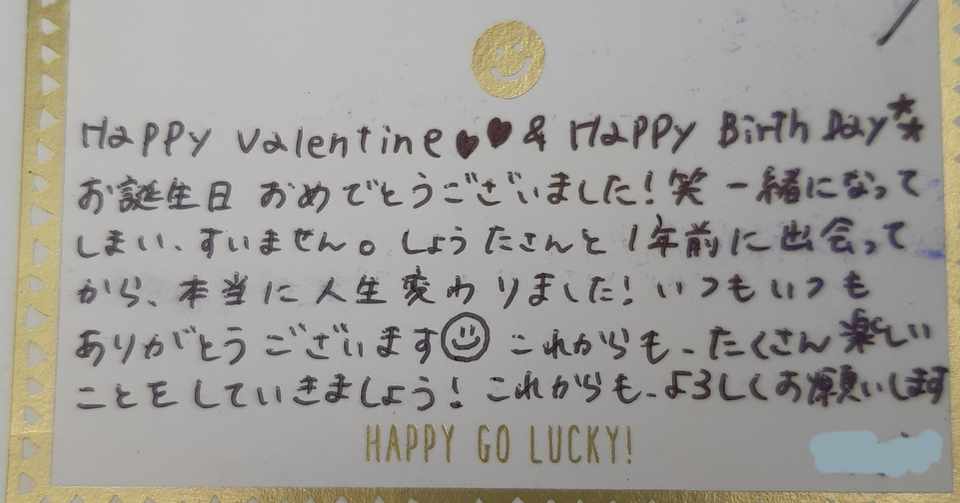 Happy Valentine♥♥ & Happy BirthDay**
お誕生日 おめでとうございました！笑 一緒になって
しまい、すいません。しょうたさんと1年前に出会って
から、本当に人生変わりました！いつもいつも
ありがとうございます☺ これからも、たくさん楽しい
ことをしていきましょう！これからも、よろしくお願いします
HAPPY GO LUCKY!